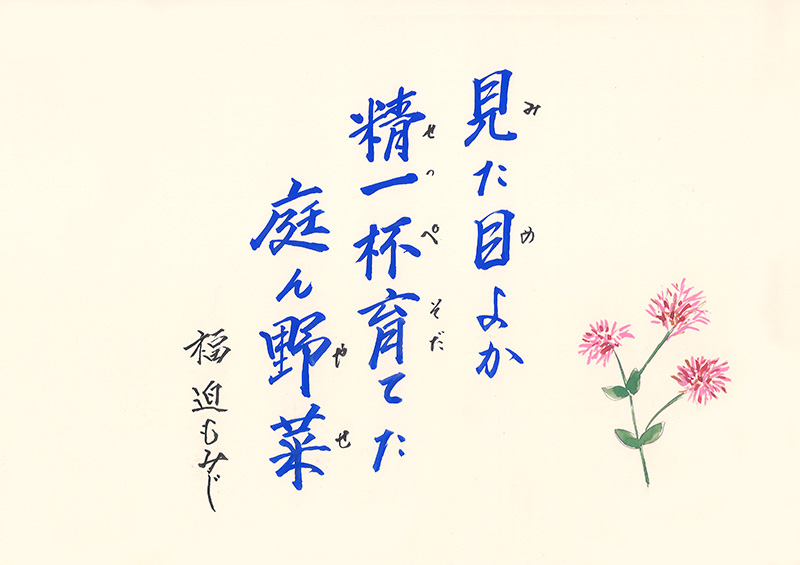 見た目よか
精一杯育てた
庭ん野菜
福迫もみじ
み
め
せっぺ
そだ
やせ